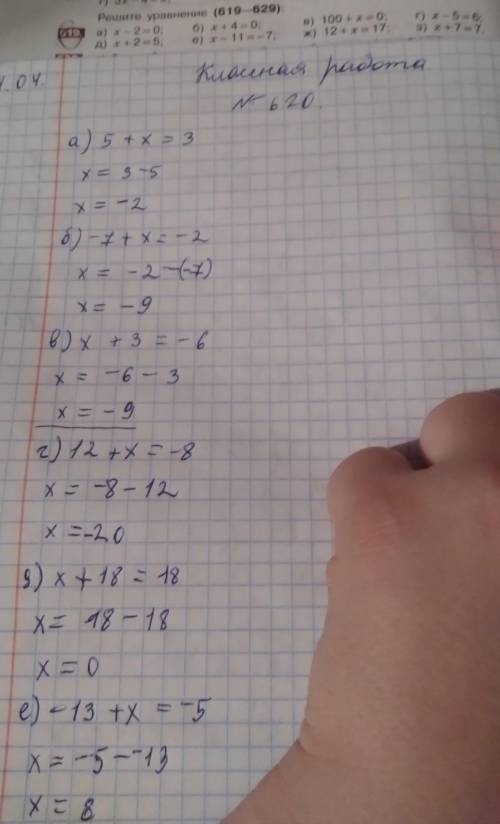 Решите уравнение (619—629).
а) x − 2 = 0; б) x + 4 = 0; в) 100 + x = 0; г) x − 5 = 6;
д) x + 2 = 5; е) x − 11 = −7; ж) 12 + x = 17; з) x + 7 = 7.
.04.
Классная работа.
№ 620.
а) 5 + x = 3
x = 3 - 5
x = -2
б) -7 + x = -2
x = -2 - (-7)
x = -9
в) x + 3 = -6
x = -6 - 3
x = -9
г) 12 + x = -8
x = -8 - 12
x = -20
д) x + 18 = 18
x = 18 - 18
x = 0
е) -13 + x = -5
x = -5 - -13
x = 8